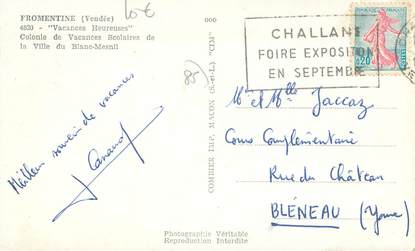 FROMENTINE (Vendée)
4630 - "Vacances Heureuses"
Colonie de Vacances Scolaires de
la Ville du Blanc-Mesnil
10€
85)
COMBIER IMP. MACON (S.-et-L.) "CIM"
CHALLANS
FOIRE EXPOSITION
EN SEPTEMBRE
0,20
Meilleur souvenir de vacances
M et Mlle Jaccaz
Cours Complémentaire
Rue du Château
BLÉNEAU (Yonne)
Photographie Véritable
Reproduction Interdite